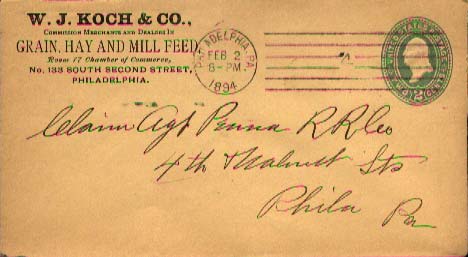 W. J. KOCH & CO.,
COMMISSION MERCHANTS AND DEALERS IN
GRAIN, HAY AND MILL FEED,
Room 17 Chamber of Commerce,
No. 133 SOUTH SECOND STREET,
PHILADELPHIA.
PHILADELPHIA, PA.
FEB 2
8-PM
1894
UNITED STATES POSTAGE
TWO CENTS
Claim Agt Penna R R Co
4th & Walnut Sts
Phila Pa